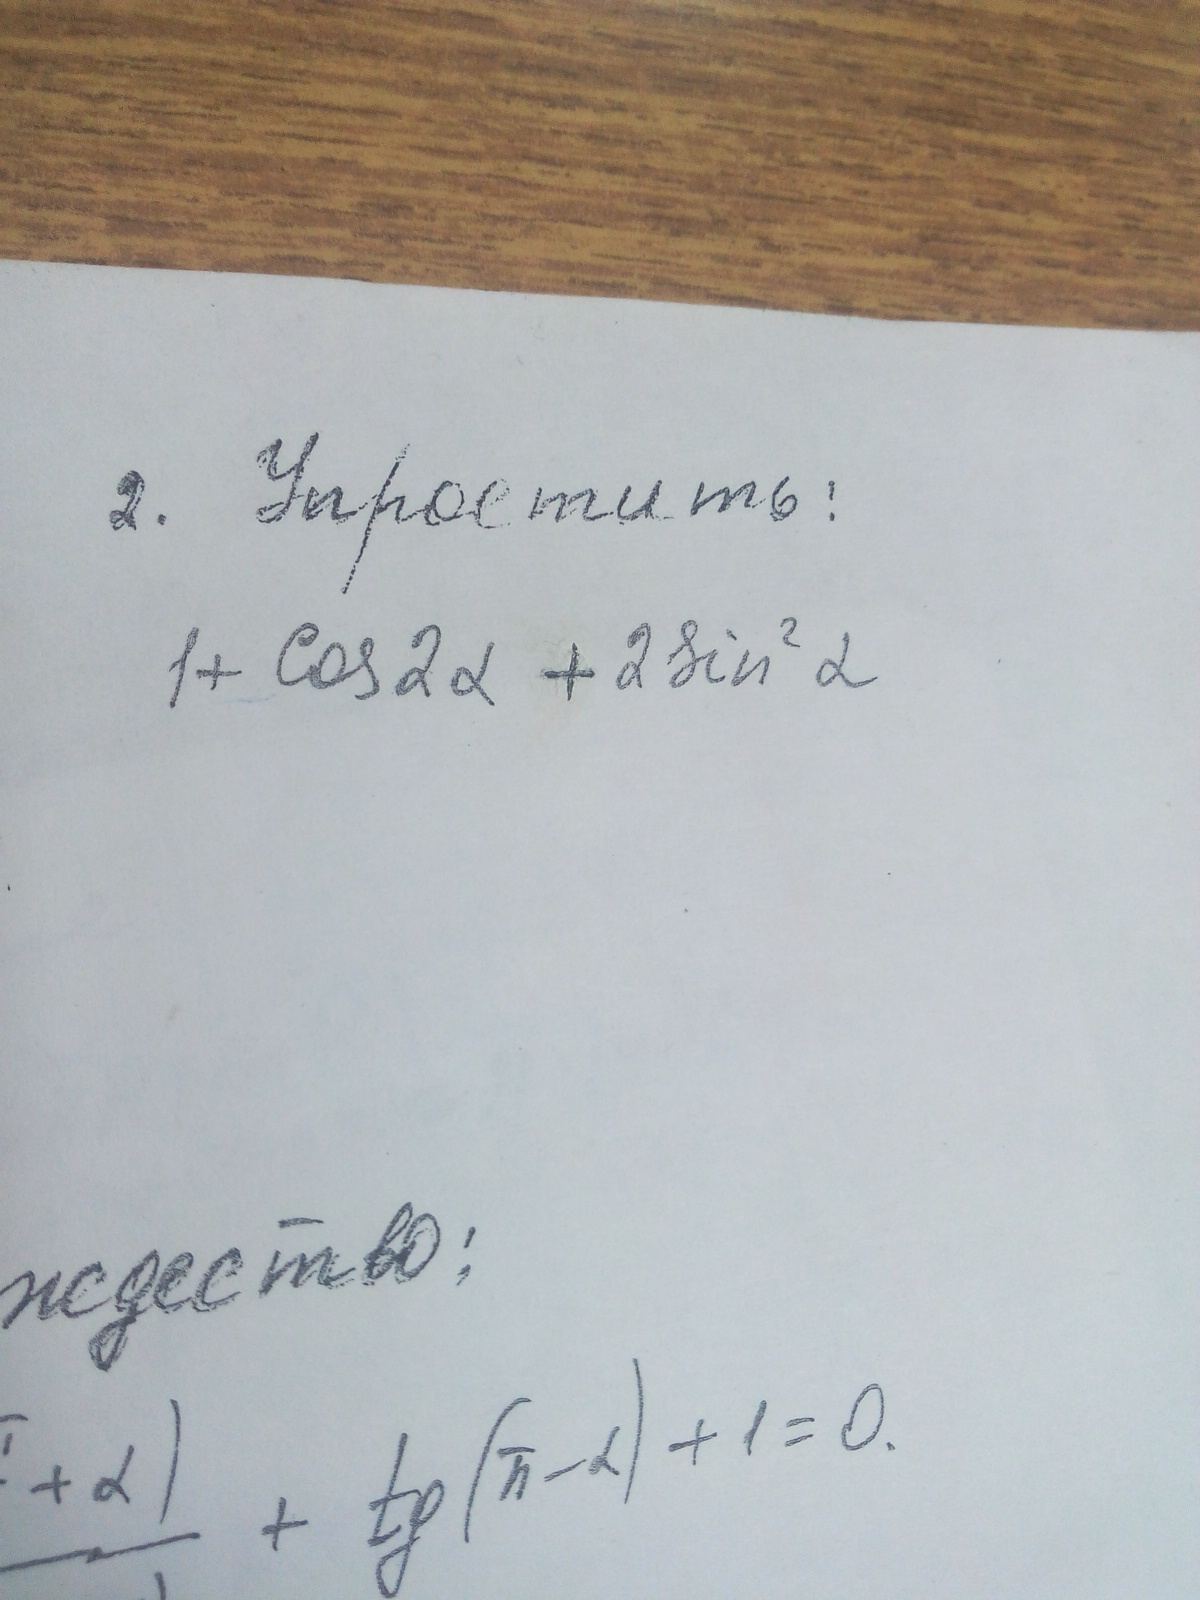 2. Упростить:
1 + cos2α + 2sin²α
ждество:
+ α)
+ tg(π - α) + 1 = 0.